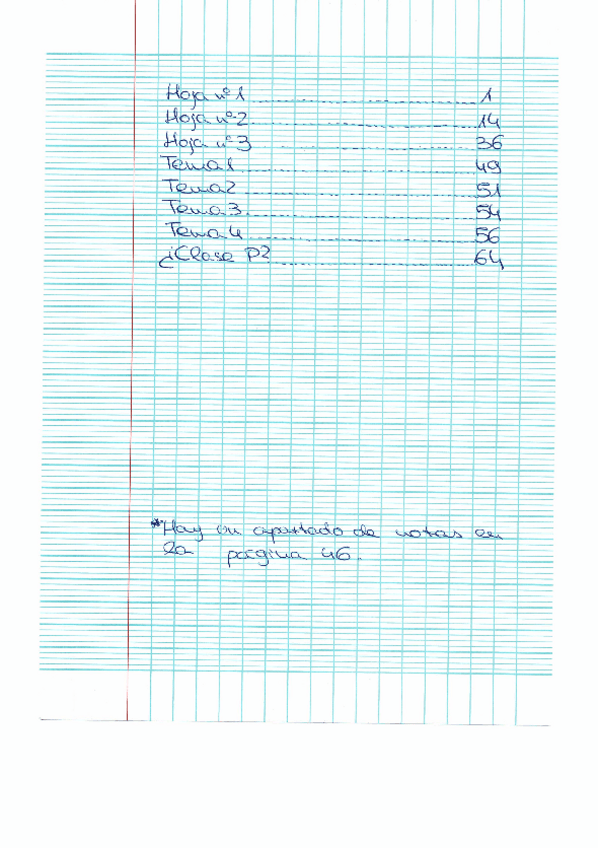 Hoja nº 1 ........ 1
Hoja nº 2 ........ 14
Hoja nº 3 ........ 36
Tema 1 ........ 49
Tema 2 ........ 51
Tema 3 ........ 54
Tema 4 ........ 56
Clase P2 ........ 64
*Hay un apartado de notas en
la página 46.